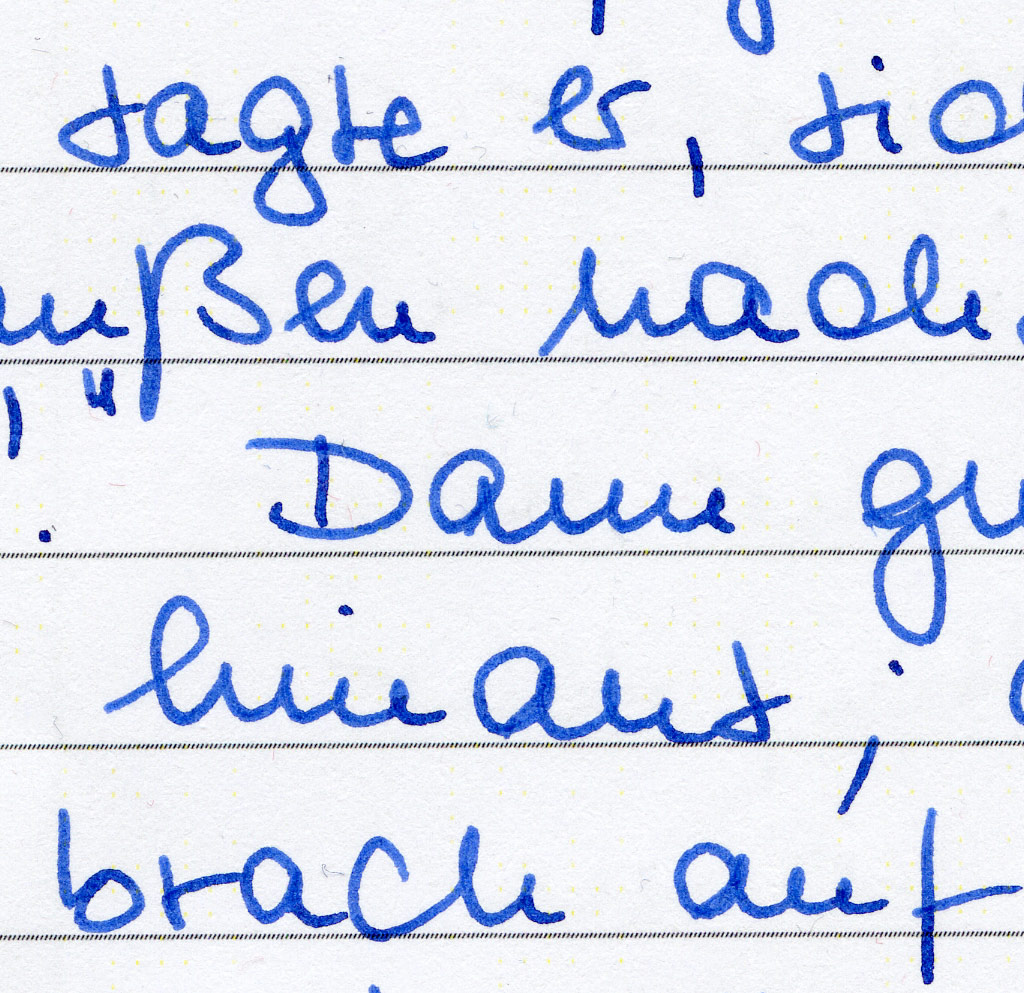 sagte er, sich
außen nach
," 
. Dann
hinaus;
brach auf